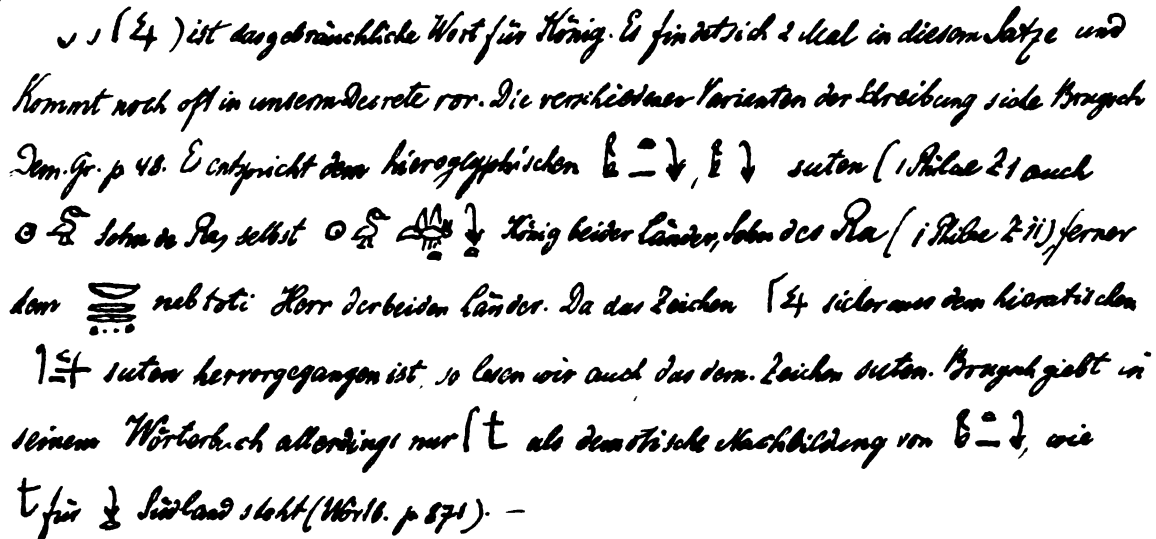 ist das gebräuchliche Wort für König. Es findet sich 2 Mal in diesem Satze und
kommt noch oft in unserm Decrete vor. Die verschiedenen Varianten der Schreibung siehe Brugsch
Dem. Gr. p 48. Es entspricht dem hieroglyphischen suten (i Philae Z 1 auch
Sohn des Ra, selbst König beider Länder, Sohn des Ra (i Philae Z ii), ferner
dem neb toti Herr der beiden Länder. Da das Zeichen sicher aus dem hieratischen
suten hervorgegangen ist, so lesen wir auch das dem. Zeichen suten. Brugsch giebt in
seinem Wörterbuch allerdings nur als demotische Nachbildung von , wie
t für Südland steht (Wörtb. p 871). —